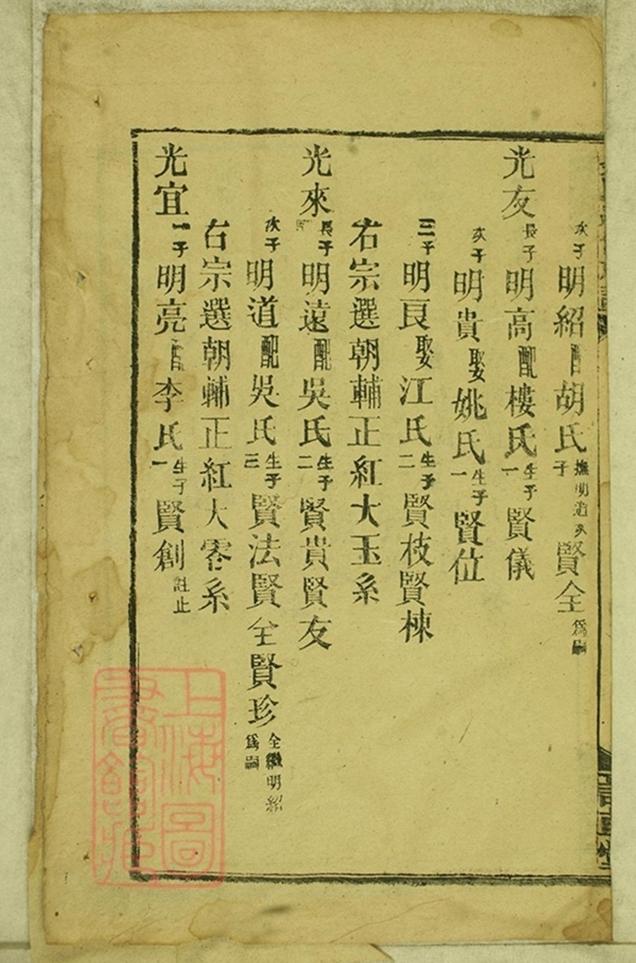 次子明紹配胡氏撫明道次子賢全爲嗣
光友長子明高配樓氏生子一賢儀
次子明貴娶姚氏生子一賢位
三子明良娶江氏生子二賢枝賢棟
右宗選朝輔正紅大玉系
光來長子明遠配吳氏生子二賢貴賢友
次子明道配吳氏生子三賢法賢全賢珍全繼明紹爲嗣
右宗選朝輔正紅大零系
光宜一子明亮配李氏生子一賢創註止
上海圖書館藏